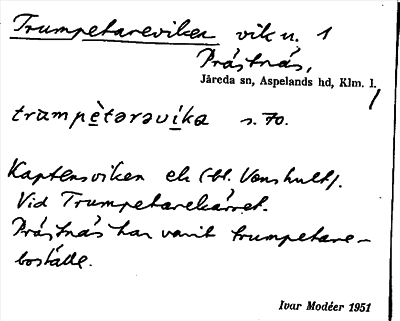 Trumpetareviken vik u. 1
Prästnäs,
Järeda sn, Aspelands hd, Klm. l.
trumpètarəvíka s. 70.
Kaptensviken el. (bl. Vanshult).
Vid Trumpetarekärret.
Prästnäs har varit trumpetare-
boställe.
Ivar Modéer 1951